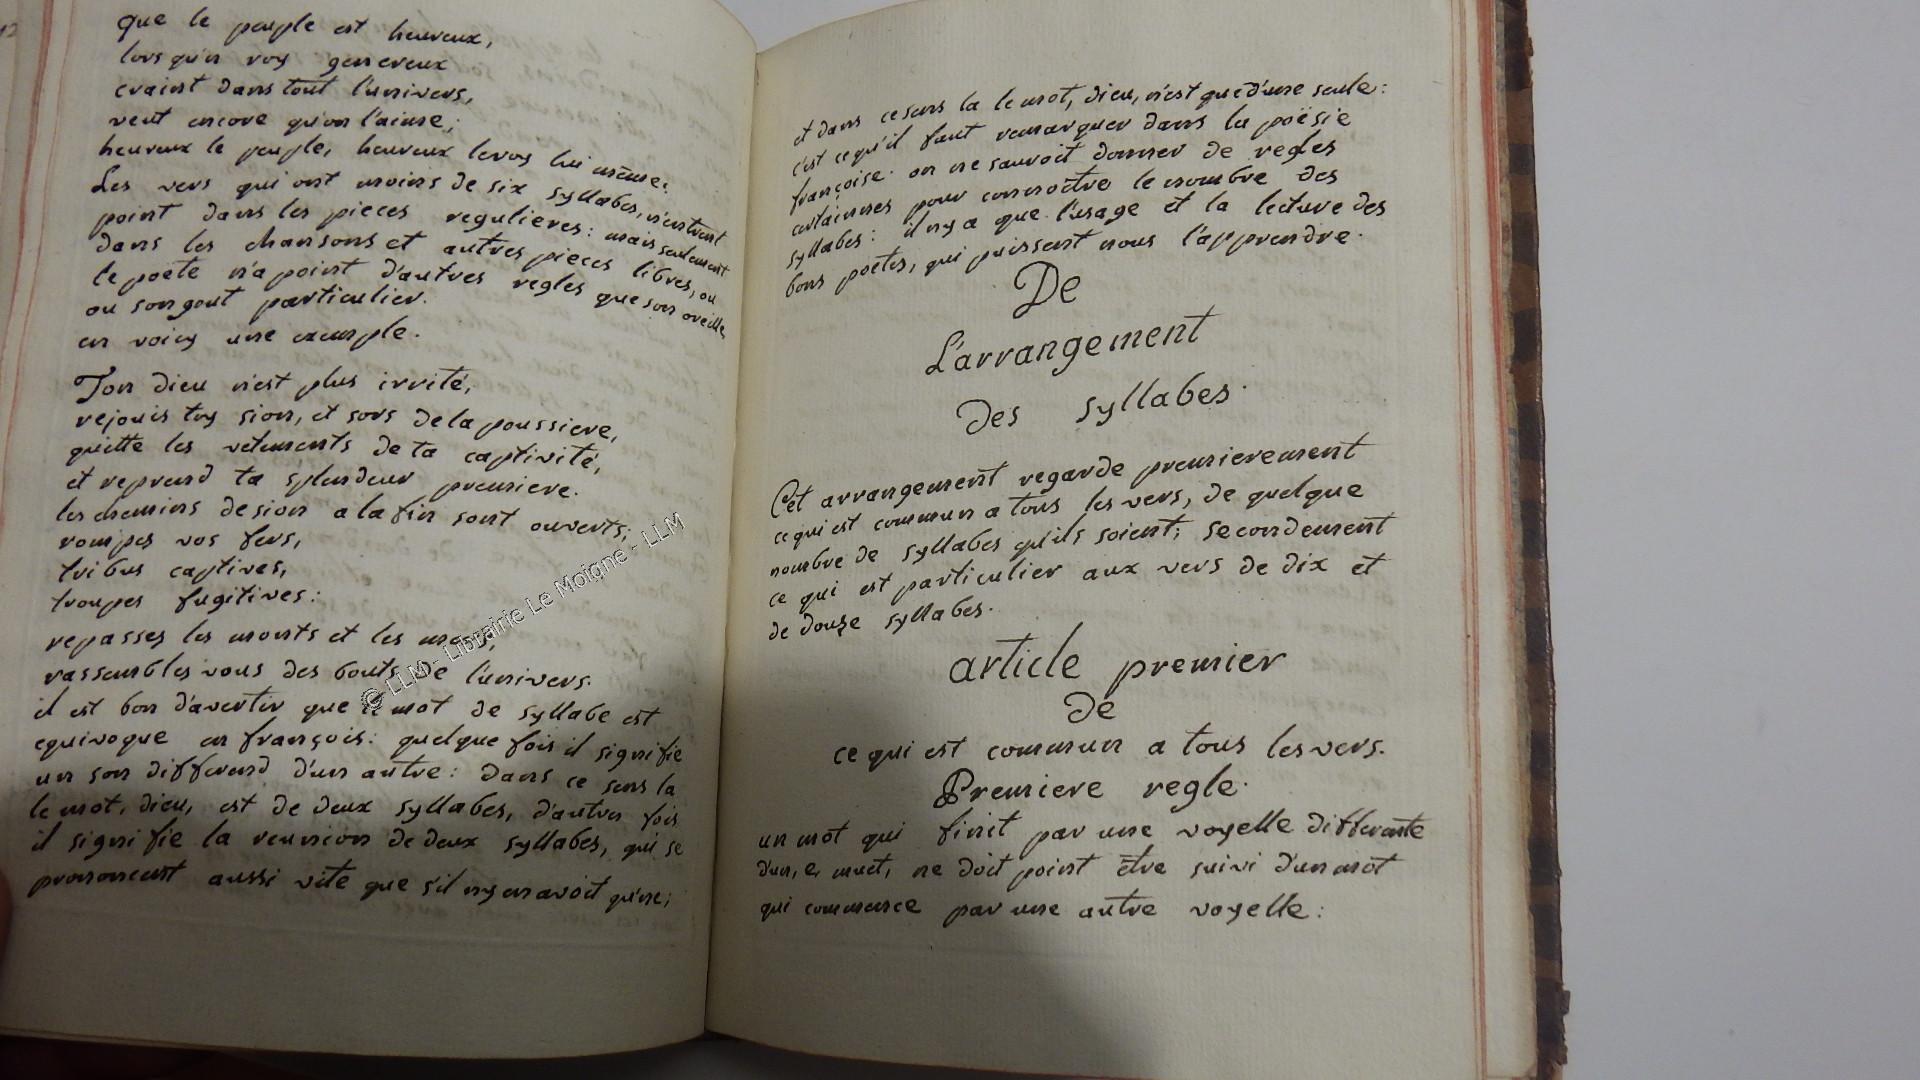 que le peuple est heureux,
lors qu'un roy genereux
craint dans tout l'univers,
veut encore qu'on l'aime;
heureux le peuple, heureux le roy lui mème:
Les vers qui ont moins de six syllabes, n'entrent
point dans les pieces regulieres: mais seulement
dans les chansons et autres pieces libres, ou
le poete n'a point d'autres regles que son oreille,
ou son gout particulier.
en voicy une exemple.
Ton dieu n'est plus irrité,
rejouis toy sion, et sors de la poussiere,
quitte les vetements de ta captivité,
et reprend ta splendeur premiere.
les chemins de sion a la fin sont ouverts;
rompes vos fers,
tribus captives,
troupes fugitives:
repasses les monts et les mers,
rassembles vous des bouts de l'univers.
il est bon d'avertir que le mot de syllabe est
equivoque en françois: quelque fois il signifie
un son differend d'un autre: dans ce sens la
le mot, dieu, est de deux syllabes, d'autres fois
il signifie la reunion de deux syllabes, qui se
prononcent aussi vite que s'il ny en avoit qu'une;
et dans ce sens la le mot, dieu, n'est que d'une seule:
c'est ce qu'il faut remarquer dans la poësie
françoise. on ne sauroit donner de regles
certaines pour connoétre le nombre des
syllabes: il ny a que l'usage et la lecture des
bons poetes, qui puissent nous l'apprendre.
De
L'arrangement
des syllabes.
Cet arrangement regarde premierement
ce qui est commun a tous les vers, de quelque
nombre de syllabes qu'ils soient; secondement
ce qui est particulier aux vers de dix et
de douze syllabes.
article premier
de
ce qui est commun a tous les vers.
Premiere regle.
un mot qui finit par une voyelle differente
d'un, e, muet, ne doit point ètre suivi d'un mot
qui commence par une autre voyelle:
© LLM - Librairie Le Moigne - LLM